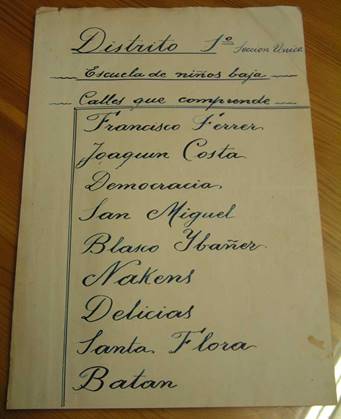 Distrito 1º Seccion Unica
Escuela de niños baja
Calles que comprende
Francisco Ferrer
Joaquin Costa
Democracia
San Miguel
Blasco Ybañez
Nakens
Delicias
Santa Flora
Batan